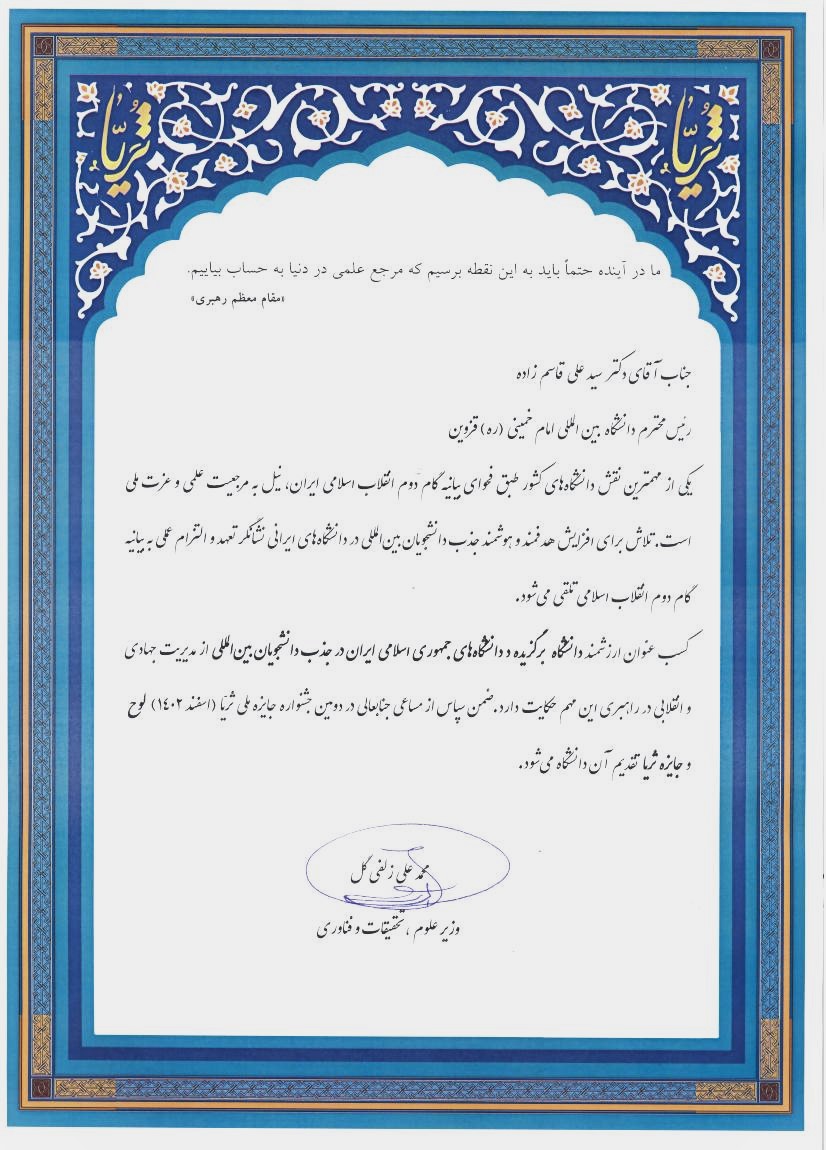 ثریا
ثریا
ما در آینده حتماً باید به این نقطه برسیم که مرجع علمی در دنیا به حساب بیاییم.
«مقام معظم رهبری»
جناب آقای دکتر سید علی قاسم زاده
رئیس محترم دانشگاه بین المللی امام خمینی (ره) قزوین
یکی از مهمترین نقش دانشگاه‌های کشور طبق فحوای بیانیه گام دوم انقلاب اسلامی ایران، نیل به مرجعیت علمی و عزت ملی
است. تلاش برای افزایش هدفمند و هوشمند جذب دانشجویان بین‌المللی در دانشگاه‌های ایرانی نشانگر تعهد و التزام عملی به بیانیه
گام دوم انقلاب اسلامی تلقی می‌شود.
کسب عنوان ارزشمند دانشگاه برگزیده د دانشگاه‌های جمهوری اسلامی ایران در جذب دانشجویان بین‌المللی از مدیریت جهادی
و انقلابی در راهبری این مهم حکایت دارد. ضمن سپاس از مساعی جنابعالی در دومین جشنواره جایزه ملی ثریّا (اسفند ۱۴۰۲) لوح
و جایزه ثریا تقدیم آن دانشگاه می‌شود.
محمد علی زلفی گل
وزیر علوم، تحقیقات و فناوری